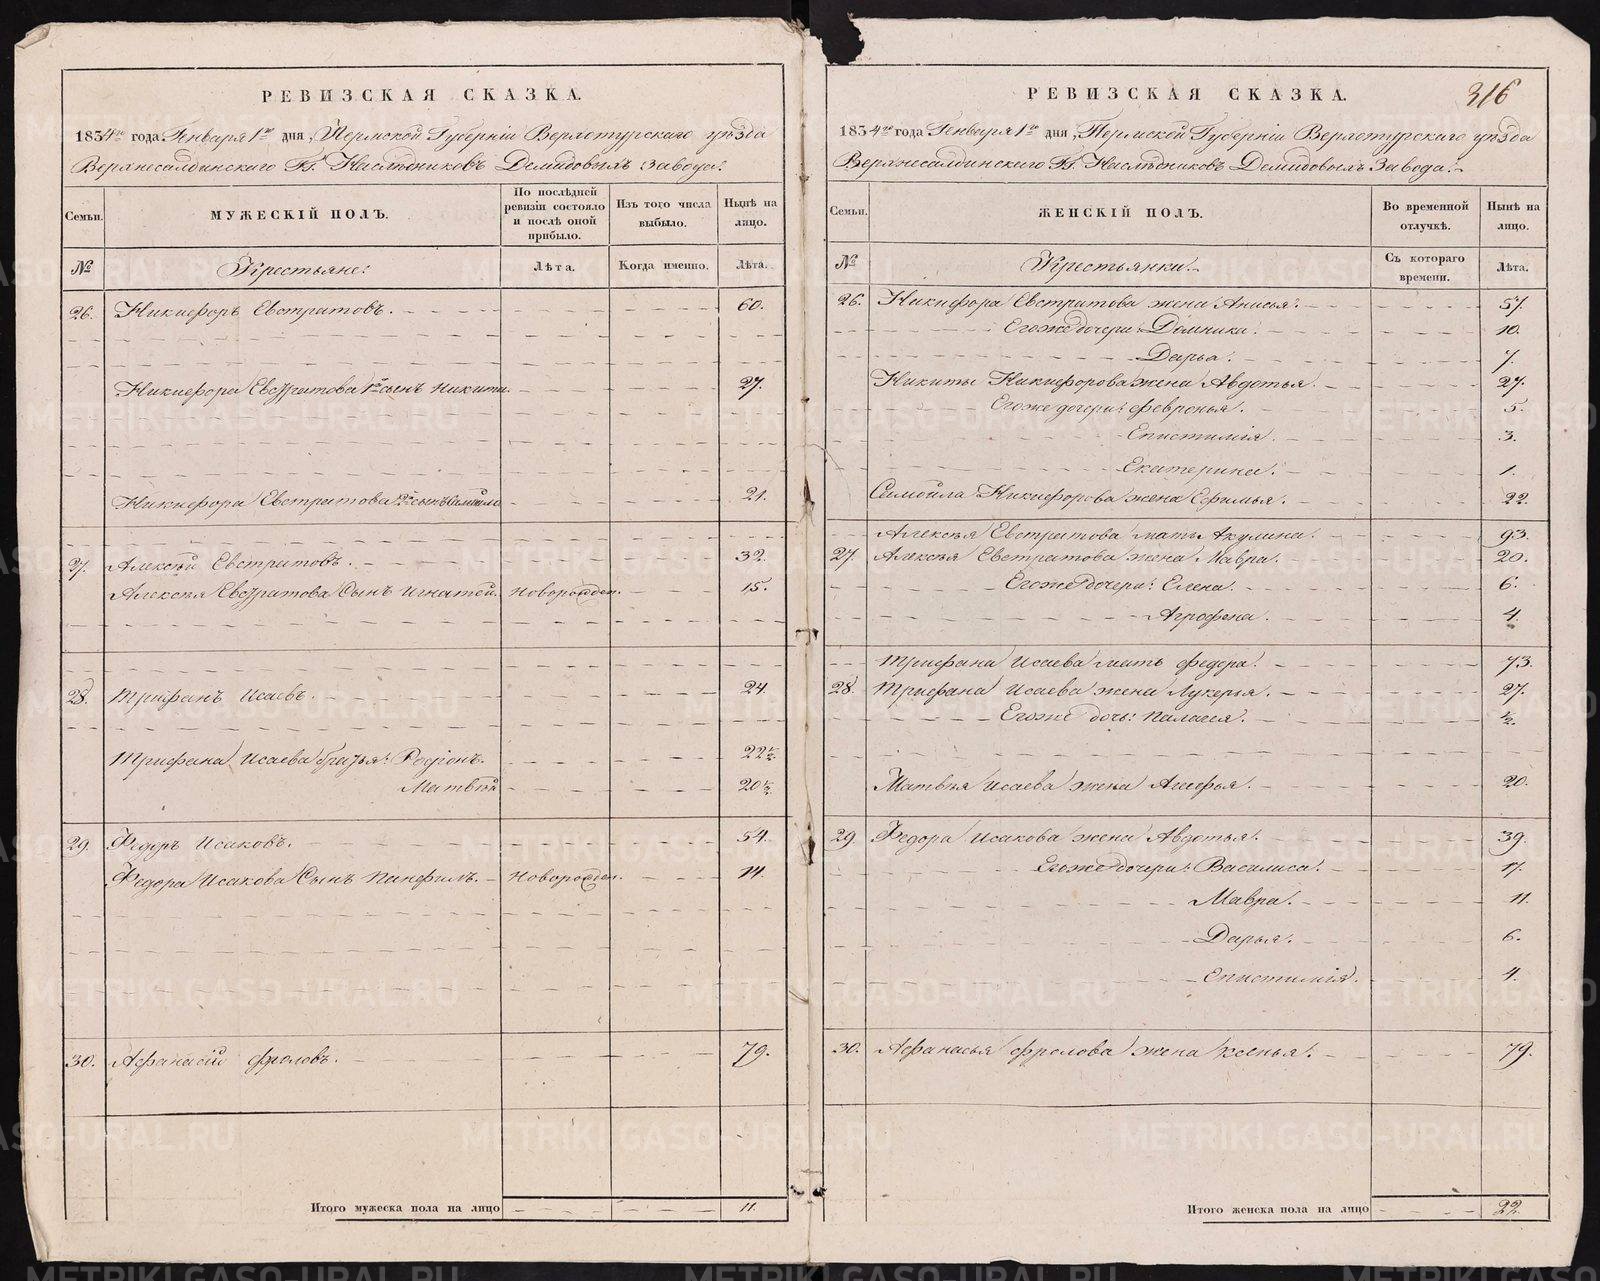 РЕВИЗСКАЯ СКАЗКА.
1834го года Генваря 1го дня, Пермской Губерніи Верхотурскаго уѣзда
Верхнесалдинскаго Гг. Наслѣдниковъ Демидовыхъ завода.
Семьи.
МУЖЕСКІЙ ПОЛЪ.
По послѣдней ревизіи состояло и послѣ оной прибыло.
Изъ того числа выбыло.
Нынѣ на лицо.
№ Крестьяне: Лѣта. Когда именно. Лѣта.
26. Никифоръ Евстратовъ. 60.
Никифора Евстратова 1й сынъ Никита. 27.
Никифора Евстратова 2й сынъ Самойло 21.
27. Алексѣй Евстратовъ. 32.
Алексѣя Евстратова Сынъ Игнатей. Новорожден. 15.
28. Трифанъ Исаевъ. 24.
Трифана Исаева братья: Родіонъ. 22½
Матвѣй 20½
29. Федоръ Исаковъ. 54.
Федора Исакова Сынъ Панфилъ. Новорожден. 14.
30. Афанасій Фроловъ. 79.
Итого мужеска пола на лицо 11.
316
РЕВИЗСКАЯ СКАЗКА.
1834го года Генваря 1го дня, Пермской Губерніи Верхотурскаго уѣзда
Верхнесалдинскаго Гг. Наслѣдниковъ Демидовыхъ Завода.
Семьи.
ЖЕНСКІЙ ПОЛЪ.
Во временной отлучкѣ.
Нынѣ на лицо.
№ Крестьянки. Съ котораго времени. Лѣта.
26. Никифора Евстратова жена Анисья. 57.
Егоже дочери: Домника. 10.
Дарья. 7.
Никиты Никифорова жена Авдотья. 27.
Егоже дочери: Февронья. 5.
Епистимія. 3.
Екатерина. 1.
Самойла Никифорова жена Ефимья. 22.
Алексѣя Евстратова мать Акулина. 93.
27. Алексѣя Евстратова жена Мавра. 20.
Егоже дочери: Елена. 6.
Агрофена. 4.
Трифана Исаева мать Федора. 73.
28. Трифана Исаева жена Лукерья. 27.
Егоже дочь: Палагея. ½.
Матвѣя Исаева жена 20.
29. Федора Исакова жена Авдотья. 39.
Егоже дочери: Василиса. 17.
Мавра. 11.
Дарья. 6.
Епистимія. 4.
30. Афанасья Фролова жена Ксенья. 79.
Итого женска пола на лицо 22.
METRIKI.GASO-URAL.RU